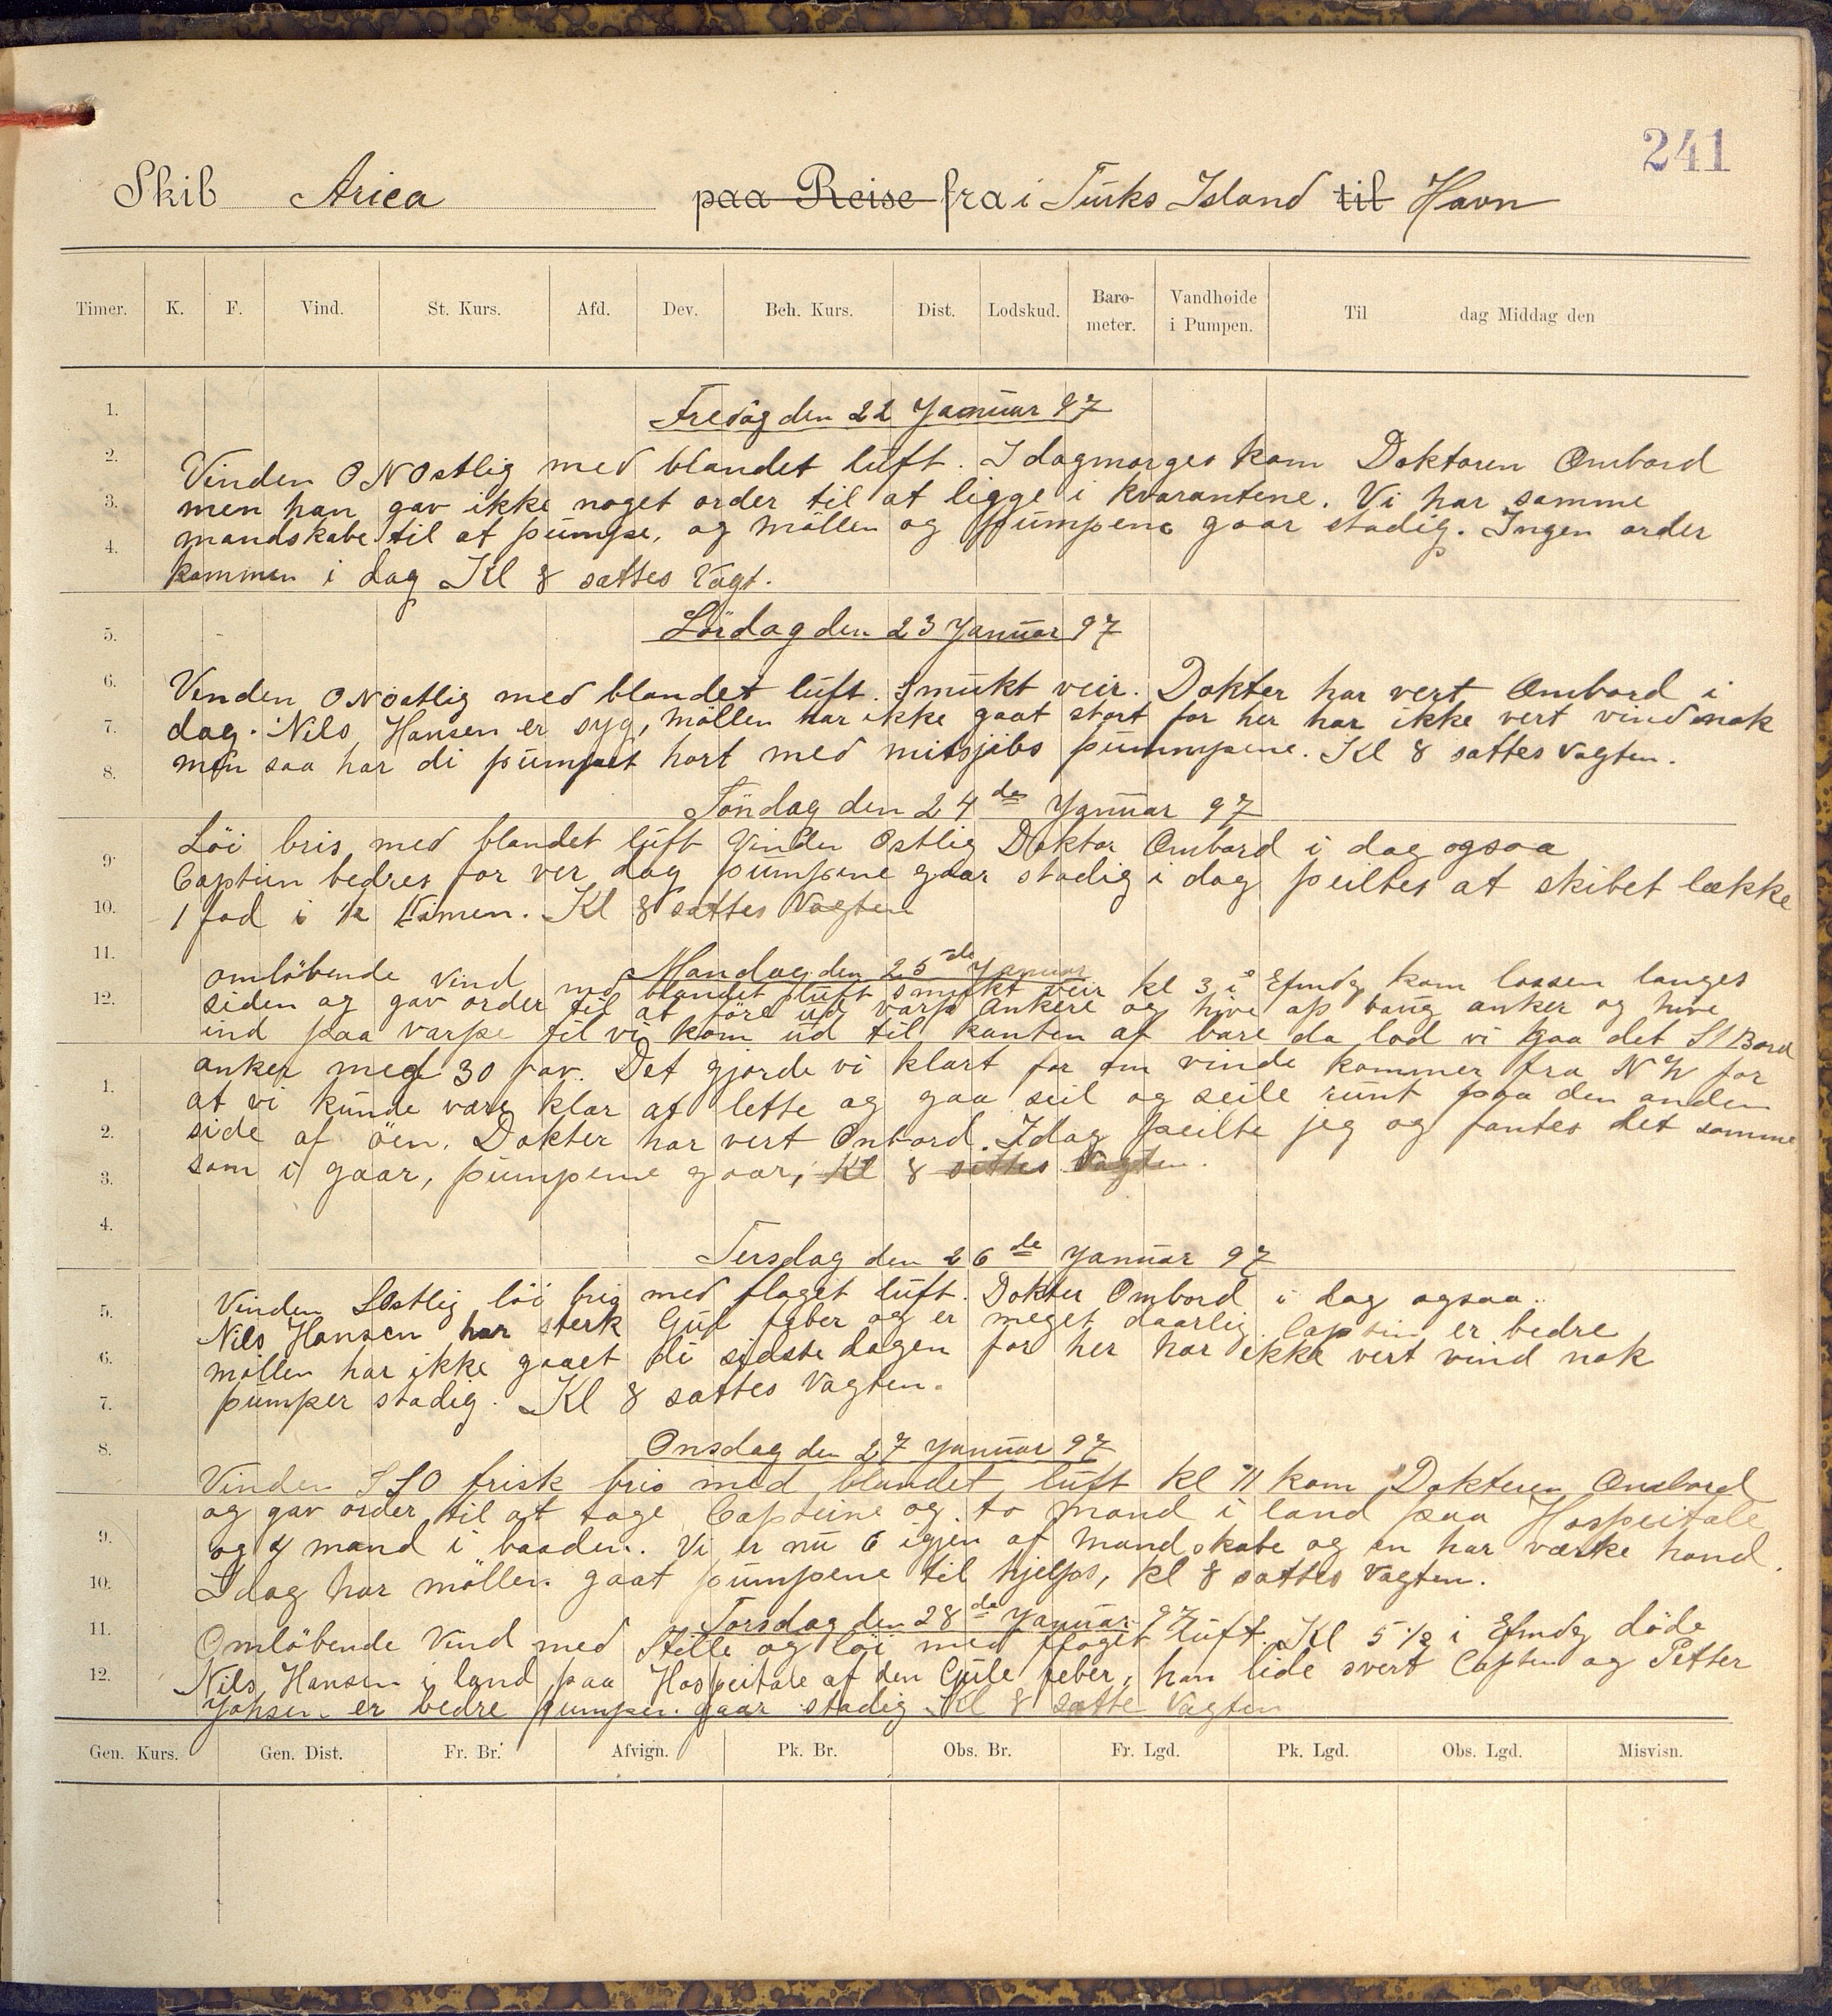 241
Skib Arica paa Reise fra i Turks Island til Havn
Timer. K. F. Vind. St. Kurs. Afd. Dev. Beh. Kurs. Dist. Lodskud. Baro-meter. Vandhoide i Pumpen. Til dag Middag den
1.
Fredag den 22 Januar 97
2.
Vinden ONOstlig med blandet luft. I dagmorges kom Doktoren Ombord
3.
men han gav ikke noget order til at ligge i kvarantene. Vi har samme
4.
mandskabe til at pumpe, og möllen og pumpene gaar stadig. Ingen order
kommen i dag Kl 8 sattes Vagt.
5.
Lördag den 23 Januar 97
6.
Vinden ONOstlig med blandet luft. Smukt veir. Dokter har vert Ombord i
7.
dag. Nils Hansen er syg, möllen har ikke gaat stort for her har ikke vert vind nok
8.
men saa har di pumpet hart med mitsjibs pummpene. Kl 8 sattes Vagten.
Söndag den 24de Januar 97
Löi bris med blandet luft Vinden Ostlig Doktor Ombord i dag ogsaa
9.
Captein bedres for ver dag pumpene gaar stadig i dag peiltes at skibet lække
10.
1 fod i ½ timen. Kl 8 sattes Vagten
11.
Mandag den 25de Januar
omlöbende Vind med blandet luft smukt veir kl 3 i Efmdg kom lossen langes
12.
siden og gav order til at före ud varp ankere og hive op baug anker og hive
ind paa varpe til vi kom ud til kanten af bare da lod vi gaa det St Bord
anker med 30 fav. Det gjorde vi klart for om vinde kommer fra NW for
1.
at vi kunde vare klar at lette og gaa seil og seile runt paa den anden
2.
side af öen. Dokter har vert Onbord. Idag peilte jeg og fantes det samme
3.
som i gaar, pumpene gaar, Kl 8 sattes Vagten.
4.
Tersdag den 26de Januar 97
5.
Vinden SOstlig löi bris med flaget luft. Dokter Ombord i dag ogsaa.
Nils Hansen har sterk Gul feber og er meget daarlig. Captein er bedre
6.
möllen har ikke gaaet di sidste dagen for her har ikke vert vind nok
7.
pumper stadig. Kl 8 sattes Vagten.
8.
Onsdag den 27 Januar 97
Vinden SSO frisk bris med blandet luft kl 11 kom Dokteren Ombord
og gav order til at tage Capteine og to mand i land paa Hospeitale
9.
og 4 mand i baaden. Vi er nu 6 igjen af Mandskabe og en har værke hand.
10.
Idag har möllen gaat pumpene til hjelps, kl 8 sattes Vagten.
Torsdag den 28de Januar 97
11.
Omlöbende Vind med Stille og löi med flaget luft. Kl 5 ½ i Efmdg döde
12.
Nils Hansen i land paa Hospeitale af den Gule feber, han lide svert Captein og Petter
Johsen er bedre pumpen gaar stadig Kl 8 satte Vagten
Gen. Kurs. Gen. Dist. Fr. Br. Afvign. Pk. Br. Obs. Br. Fr. Lgd. Pk. Lgd. Obs. Lgd. Misvisn.